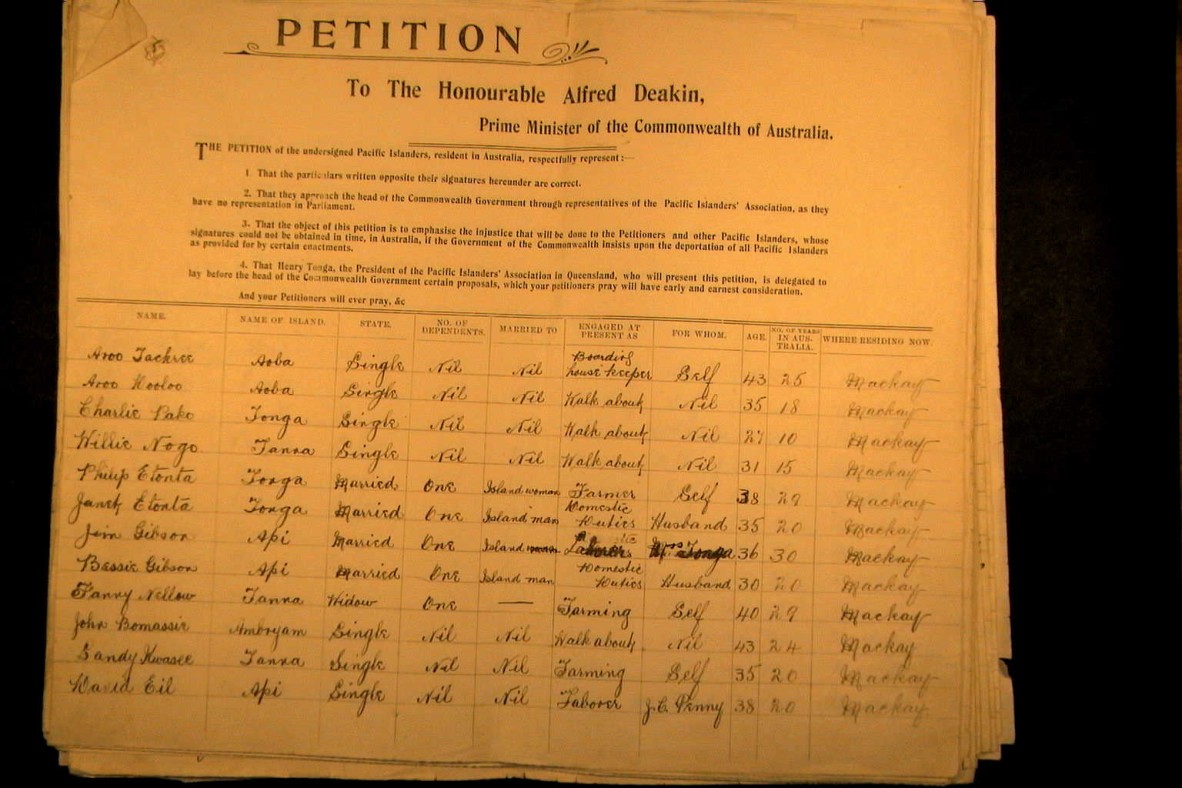 PETITION
To The Honourable Alfred Deakin,
Prime Minister of the Commonwealth of Australia.
THE PETITION of the undersigned Pacific Islanders, resident in Australia, respectfully represent:—
1 That the particulars written opposite their signatures hereunder are correct.
2. That they approach the head of the Commonwealth Government through representatives of the Pacific Islanders' Association, as they
have no representation in Parliament.
3. That the object of this petition is to emphasise the injustice that will be done to the Petitioners and other Pacific Islanders, whose
signatures could not be obtained in time, in Australia, if the Government of the Commonwealth insists upon the deportation of all Pacific Islanders
as provided for by certain enactments.
4. That Henry Tonga, the President of the Pacific Islanders' Association in Queensland, who will present this petition, is delegated to
lay before the head of the Commonwealth Government certain proposals, which your petitioners pray will have early and earnest consideration.
And your Petitioners will ever pray, &c
NAME. NAME OF ISLAND. STATE. NO. OF DEPENDENTS. MARRIED TO ENGAGED AT PRESENT AS FOR WHOM. AGE. NO. OF YEARS IN AUSTRALIA. WHERE RESIDING NOW.
Aroo Tackree Aoba Single Nil Nil Boarding house keeper Self 43 25 Mackay
Aroo Wooloo Aoba Single Nil Nil Walk about Nil 35 18 Mackay
Charlie Pako Tonga Single Nil Nil Walk about Nil 27 10 Mackay
Willie Nogo Tanna Single Nil Nil Walk about Nil 31 15 Mackay
Philip Etonta Tonga Married One Island woman Farmer Self 38 29 Mackay
Janet Etonta Tonga Married One Island man Domestic Duties Husband 35 20 Mackay
Jim Gibson Api Married One Island woman Laborer Tonga 36 30 Mackay
Bessie Gibson Api Married One Island man Domestic Duties Husband 30 20 Mackay
Fanny Nellow Tanna Widow One — Farming Self 40 29 Mackay
John Bomassie Ambryam Single Nil Nil Walk about Nil 43 24 Mackay
Sandy Kwasee Tanna Single Nil Nil Farming Self 35 20 Mackay
David Eil Api Single Nil Nil Laborer J.C. Penny 38 20 Mackay